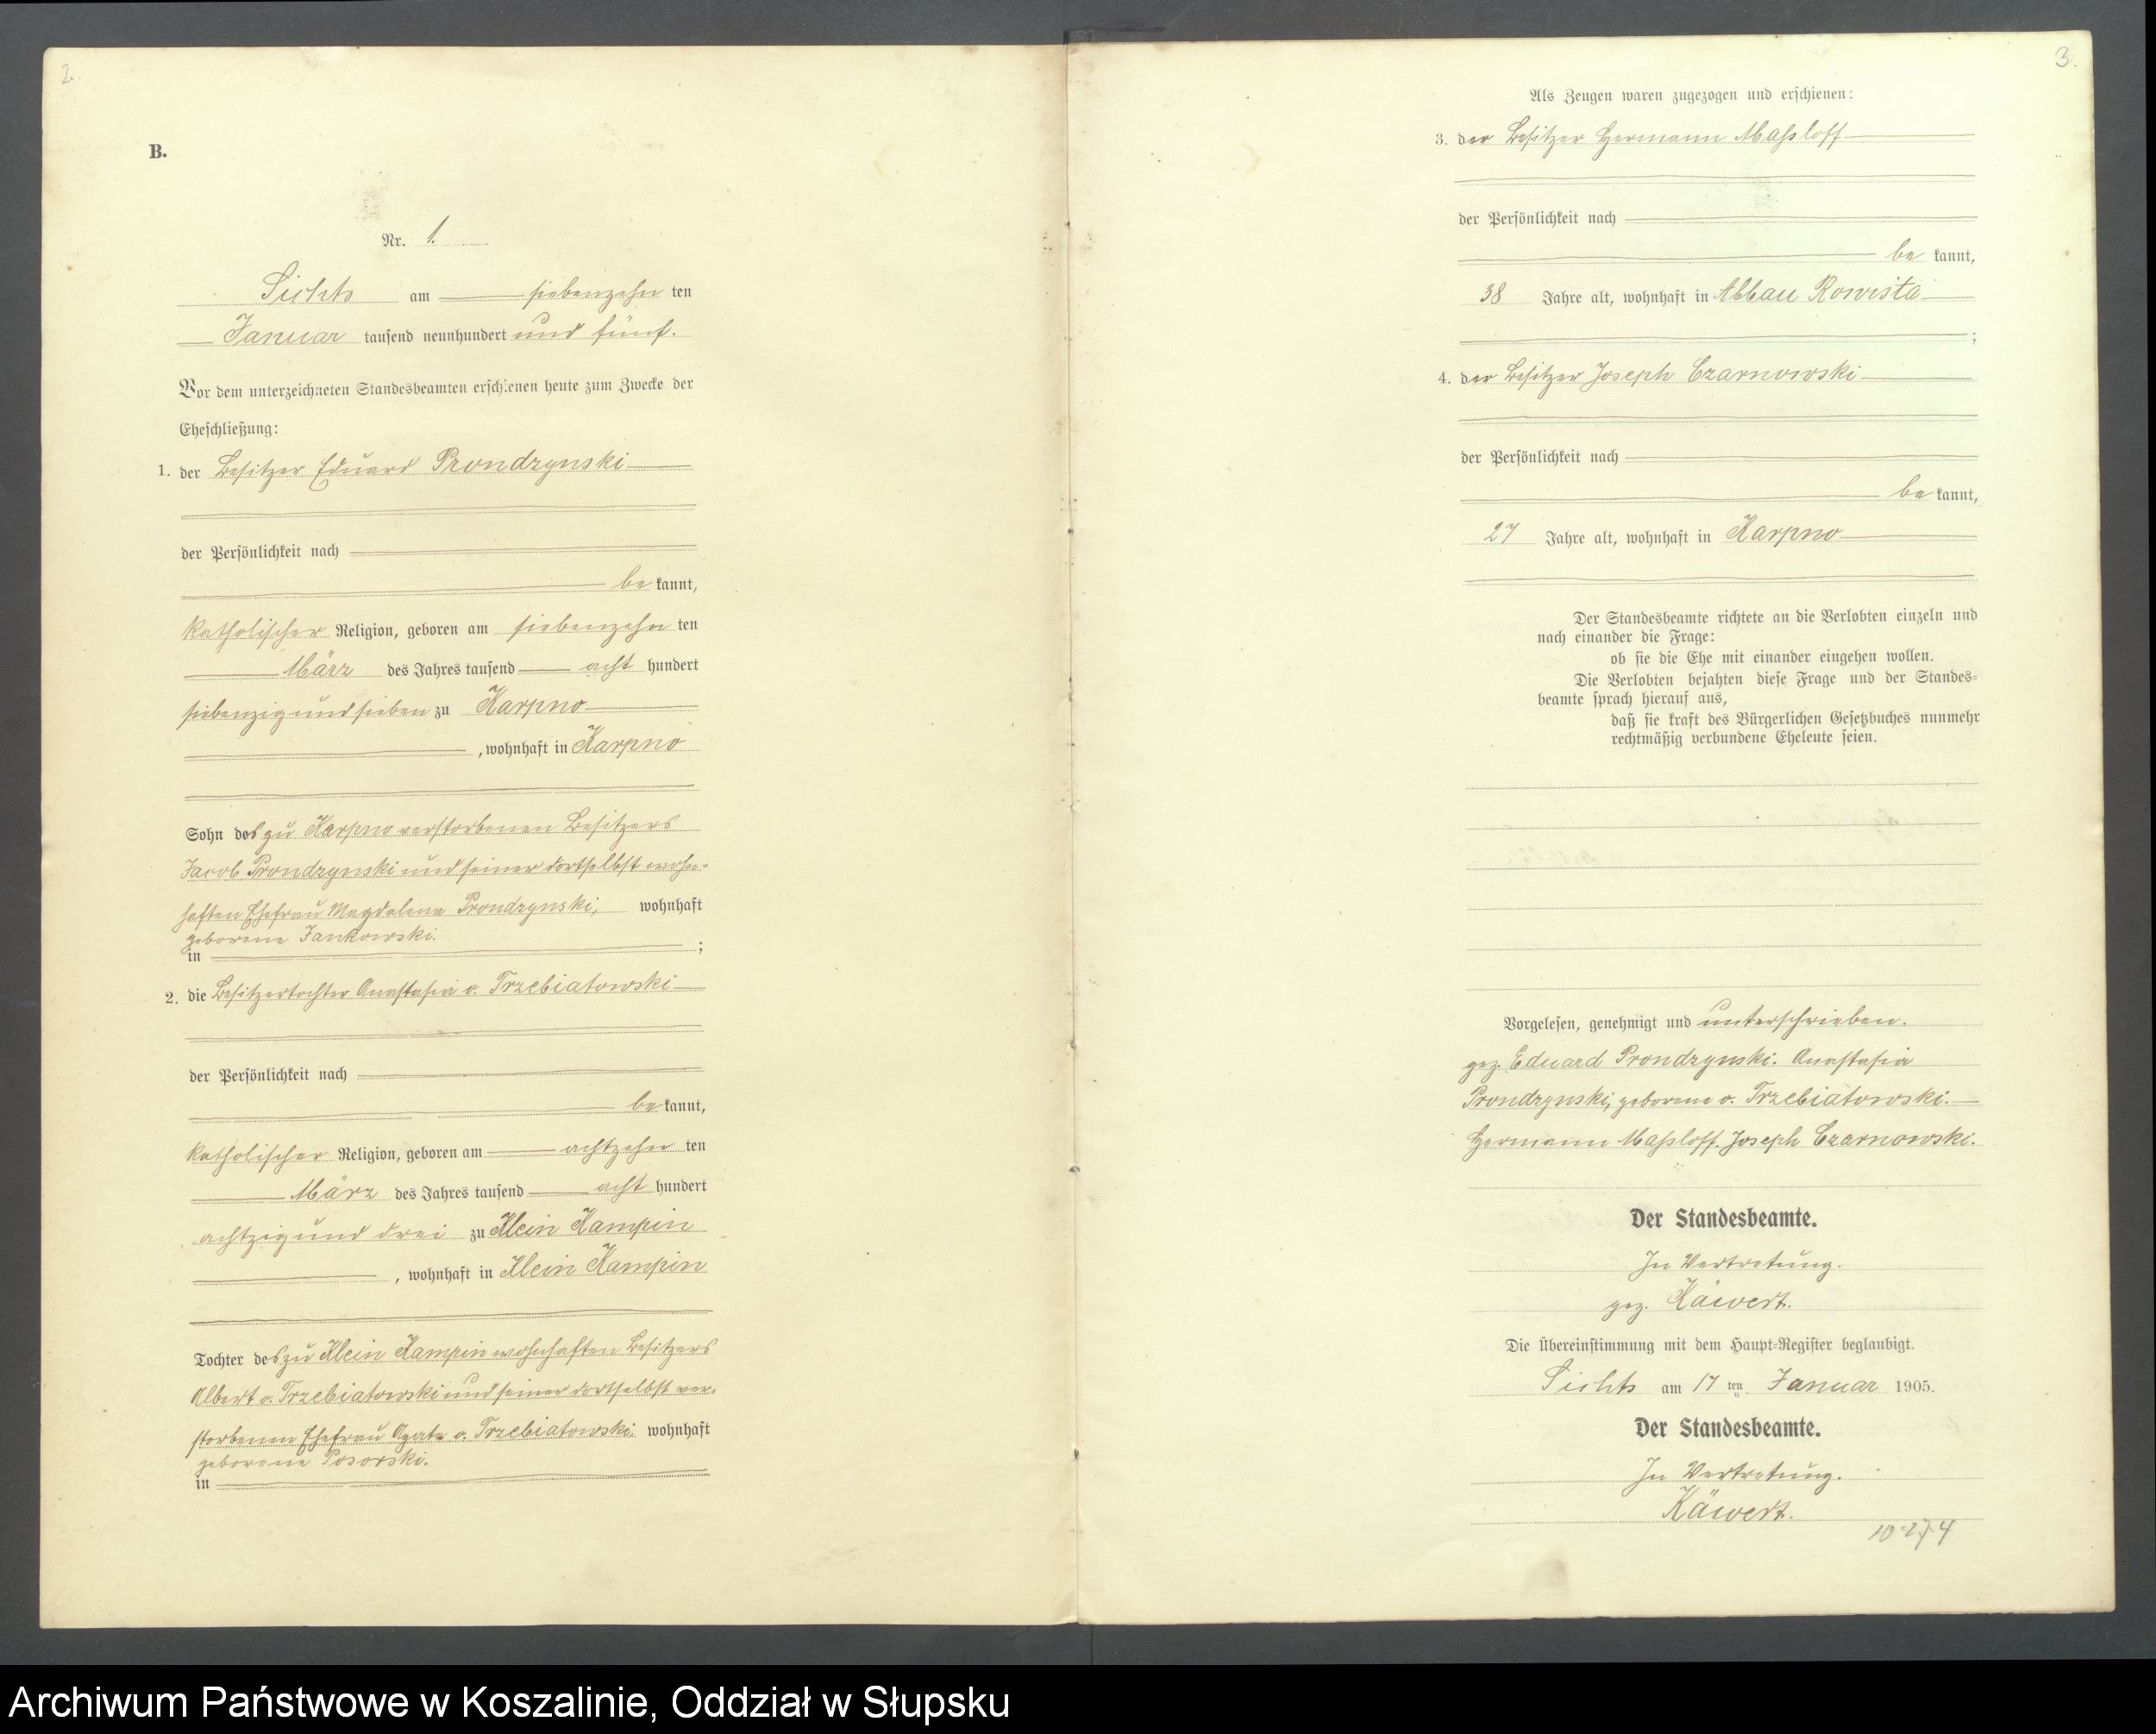 2.
B.
Nr. 1.
Sichts am siebenzehn ten
Januar tausend neunhundert und fünf.
Vor dem unterzeichneten Standesbeamten erschienen heute zum Zwecke der
Eheschließung:
1. der Besitzer Eduard Prondzynski
der Persönlichkeit nach
be kannt,
katholischer Religion, geboren am siebenzehn ten
März des Jahres tausend acht hundert
siebenzig und sieben zu Karpno
, wohnhaft in Karpno
Sohn des zu Karpno verstorbenen Besitzers
Jacob Prondzynski und seiner dortselbst wohn-
haften Ehefrau Magdalena Prondzynski, wohnhaft
geborene Jankowski.
in ;
2. die Besitzertochter Anastasia v. Trzebiatowski
der Persönlichkeit nach
be kannt,
katholischer Religion, geboren am achtzehn ten
März des Jahres tausend acht hundert
achtzig und drei zu Klein Kampin
, wohnhaft in Klein Kampin
Tochter des zu Klein Kampin wohnhaften Besitzers
Albert v. Trzebiatowski und seiner dortselbst ver-
storbenen Ehefrau Agata v. Trzebiatowski, wohnhaft
geborene Posorski.
in
3.
Als Zeugen waren zugezogen und erschienen:
3. der Besitzer Hermann Maßloff
der Persönlichkeit nach
be kannt,
38 Jahre alt, wohnhaft in Abbau Rowista
;
4. der Besitzer Joseph Czarnowski
der Persönlichkeit nach
be kannt,
27 Jahre alt, wohnhaft in Karpno
Der Standesbeamte richtete an die Verlobten einzeln und
nach einander die Frage:
ob sie die Ehe mit einander eingehen wollen.
Die Verlobten bejahten diese Frage und der Standes-
beamte sprach hierauf aus,
daß sie kraft des Bürgerlichen Gesetzbuches nunmehr
rechtmäßig verbundene Eheleute seien.
Vorgelesen, genehmigt und unterschrieben.
gez. Eduard Prondzynski. Anastasia
Prondzynski, geborene v. Trzebiatowski.
Hermann Maßloff. Joseph Czarnowski.
Der Standesbeamte.
In Vertretung.
gez. Käwert.
Die Übereinstimmung mit dem Haupt-Register beglaubigt.
Sichts am 17 ten Januar 1905.
Der Standesbeamte.
In Vertretung.
Käwert.
Archiwum Państwowe w Koszalinie, Oddział w Słupsku